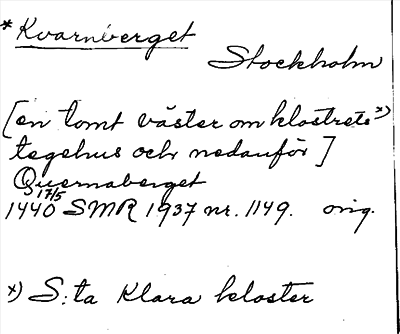 *Kvarnberget
Stockholm
[en tomt väster om klostrets x)
tegehus och nedanför]
Quernaberget
17/5
1440 SMR 1937 nr. 1149. orig.
x) S:ta Klara kloster